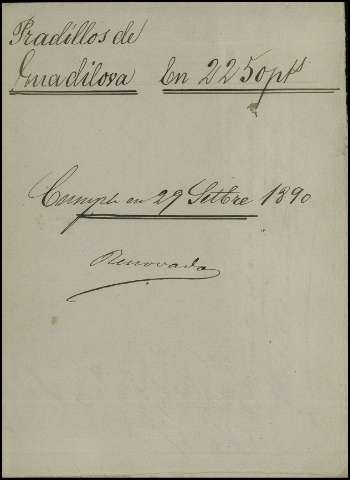 Pradillos de
Guadilova En 2250 pts
Cumple en 29 Setbre 1890
Renovada